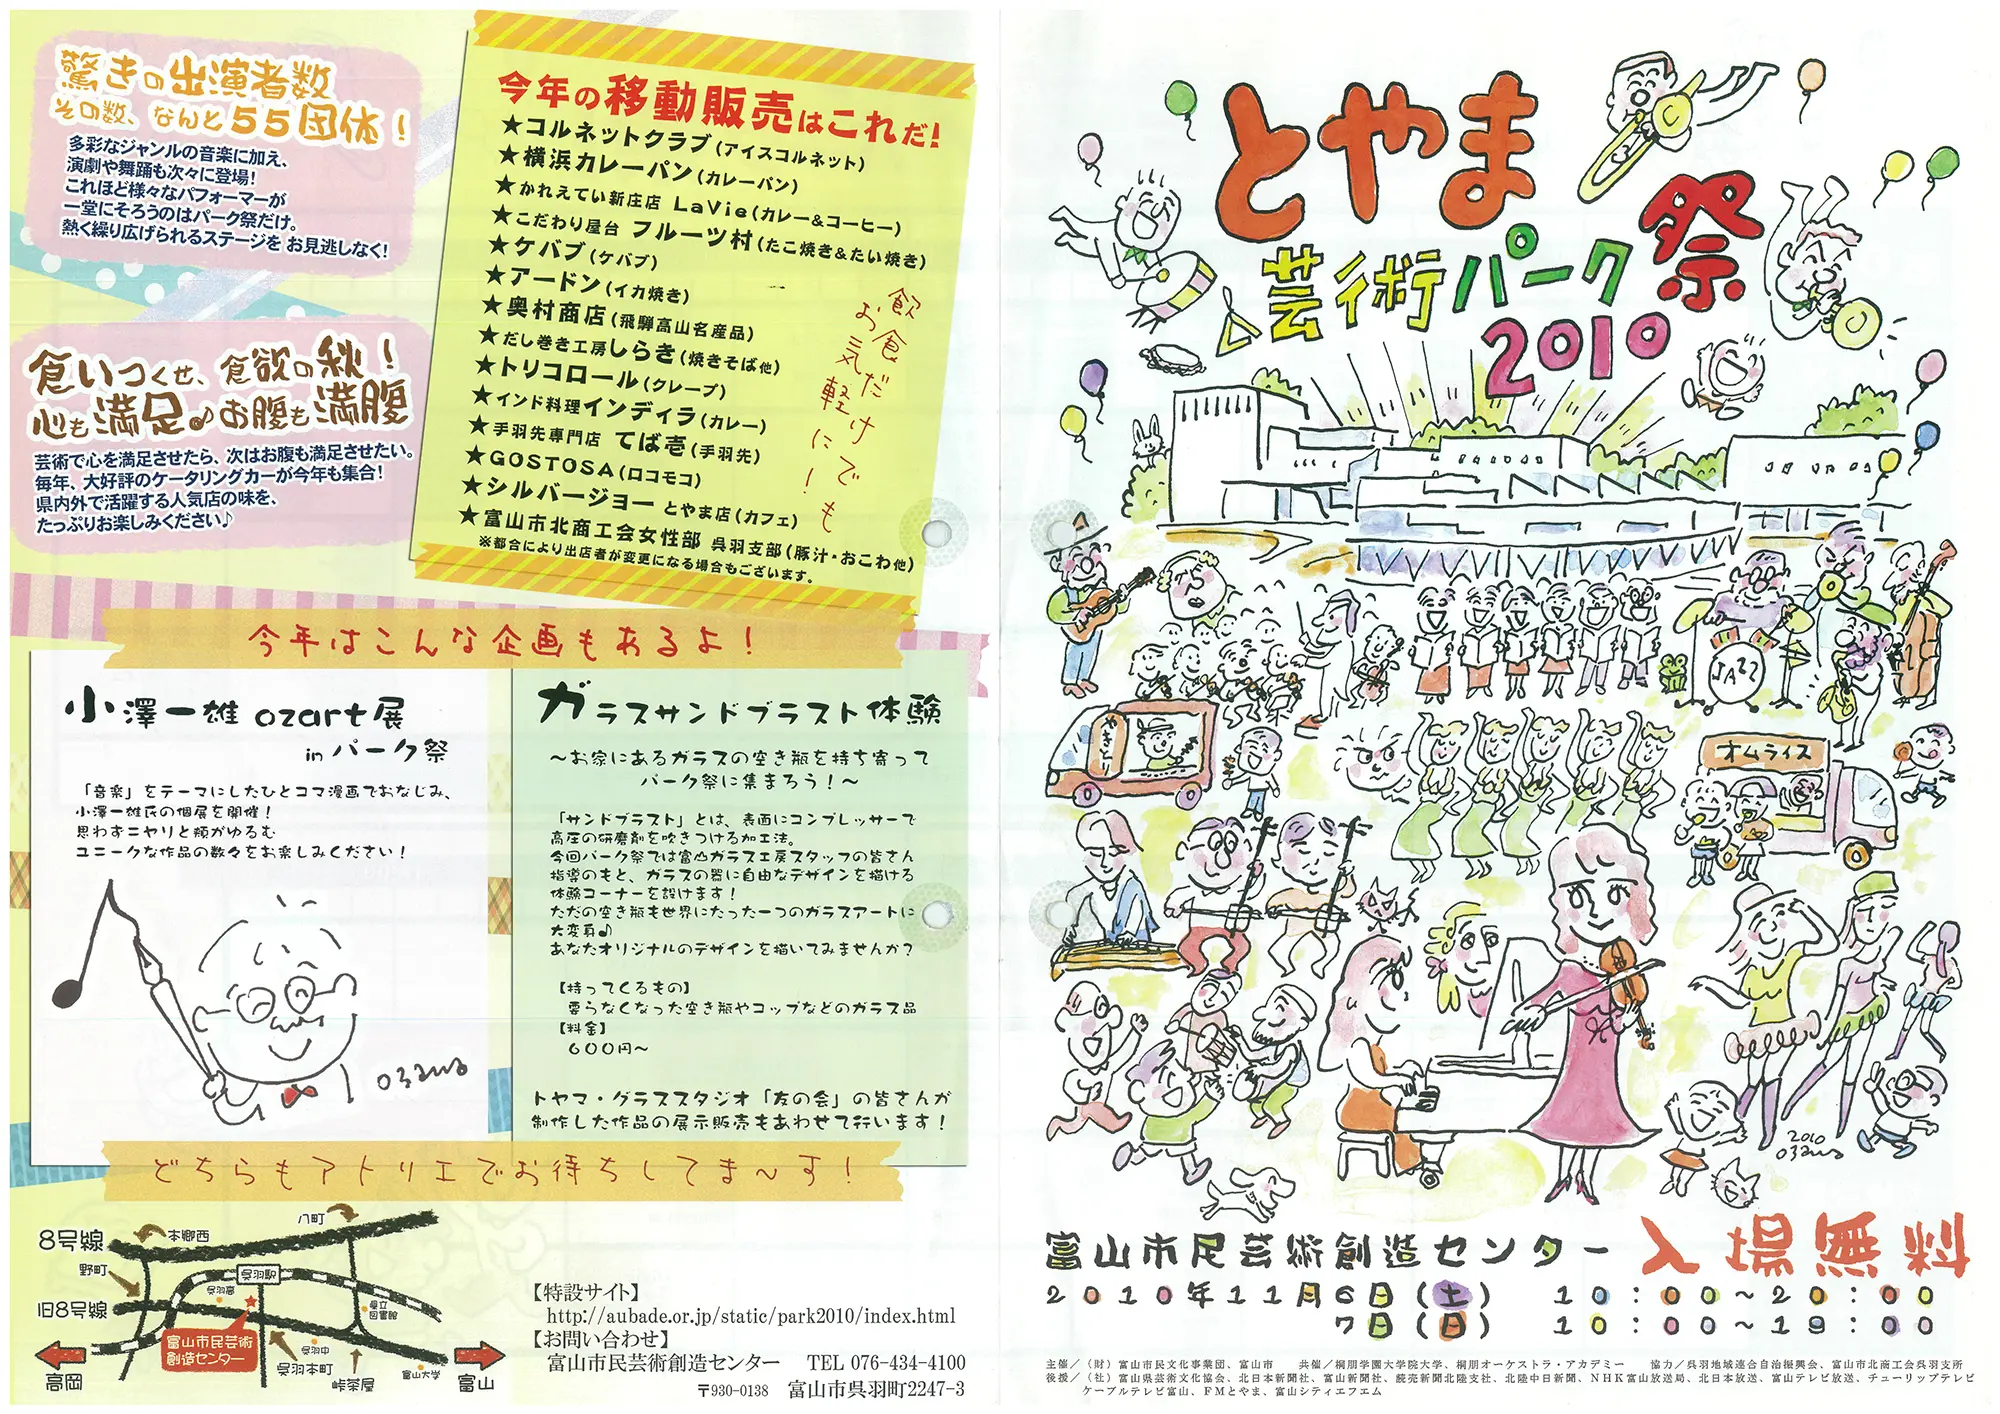 驚きの出演者数
その数、なんと55団体！
多彩なジャンルの音楽に加え、
演劇や舞踊も次々に登場！
これほど様々なパフォーマーが
一堂にそろうのはパーク祭だけ。
熱く繰り広げられるステージを お見逃しなく！
食いつくせ、食欲の秋！
心も満足♪お腹も満腹
芸術で心を満足させたら、次はお腹も満足させたい。
毎年、大好評のケータリングカーが今年も集合！
県内外で活躍する人気店の味を、
たっぷりお楽しみください♪
今年の移動販売はこれだ！
★コルネットクラブ（アイスコルネット）
★横浜カレーパン（カレーパン）
★かれえてい新庄店 LaVie（カレー＆コーヒー）
★こだわり屋台 フルーツ村（たこ焼き＆たい焼き）
★ケバブ（ケバブ）
★アードン（イカ焼き）
★奥村商店（飛騨高山名産品）
★だし巻き工房しらき（焼きそば他）
★トリコロール（クレープ）
★インド料理インディラ（カレー）
★手羽先専門店 てば壱（手羽先）
★GOSTOSA（ロコモコ）
★シルバージョー とやま店（カフェ）
★富山市北商工会女性部 呉羽支部（豚汁・おこわ他）
※都合により出店者が変更になる場合もございます。
飲食だけでも
お気軽に！
今年はこんな企画もあるよ！
小澤一雄 ozart展
in パーク祭
「音楽」をテーマにしたひとコマ漫画でおなじみ、
小澤一雄氏の個展を開催！
思わずニヤリと頬がゆるむ
ユニークな作品の数々をお楽しみください！
ozawa
ガラスサンドブラスト体験
～お家にあるガラスの空き瓶を持ち寄って
パーク祭に集まろう！～
「サンドブラスト」とは、表面にコンプレッサーで
高圧の研磨剤を吹きつける加工法。
今回パーク祭では富山ガラス工房スタッフの皆さん
指導のもと、ガラスの器に自由なデザインを描ける
体験コーナーを設けます！
ただの空き瓶も世界にたった一つのガラスアートに
大変身♪
あなたオリジナルのデザインを描いてみませんか？
【持ってくるもの】
要らなくなった空き瓶やコップなどのガラス品
【料金】
600円～
トヤマ・グラススタジオ「友の会」の皆さんが
制作した作品の展示販売もあわせて行います！
どちらもアトリエでお待ちしてま～す！
8号線
本郷西
八町
野町
呉羽駅
呉羽高
旧8号線
県立
図書館
富山市民芸術
創造センター
呉羽中
呉羽本町
峠茶屋
富山大学
高岡
富山
【特設サイト】
http://aubade.or.jp/static/park2010/index.html
【お問い合わせ】
富山市民芸術創造センター TEL 076-434-4100
〒930-0138 富山市呉羽町2247-3
とやま
芸術パーク祭
2010
JAZZ
やきいも
オムライス
2010
ozawa
富山市民芸術創造センター 入場無料
2010年11月6日（土） 10：00～20：00
7日（日） 10：00～19：00
主催／（財）富山市民文化事業団、富山市 共催／桐朋学園大学院大学、桐朋オーケストラ・アカデミー 協力／呉羽地域連合自治振興会、富山市北商工会呉羽支所
後援／（社）富山県芸術文化協会、北日本新聞社、富山新聞社、読売新聞北陸支社、北陸中日新聞、NHK富山放送局、北日本放送、富山テレビ放送、チューリップテレビ
ケーブルテレビ富山、FMとやま、富山シティエフエム